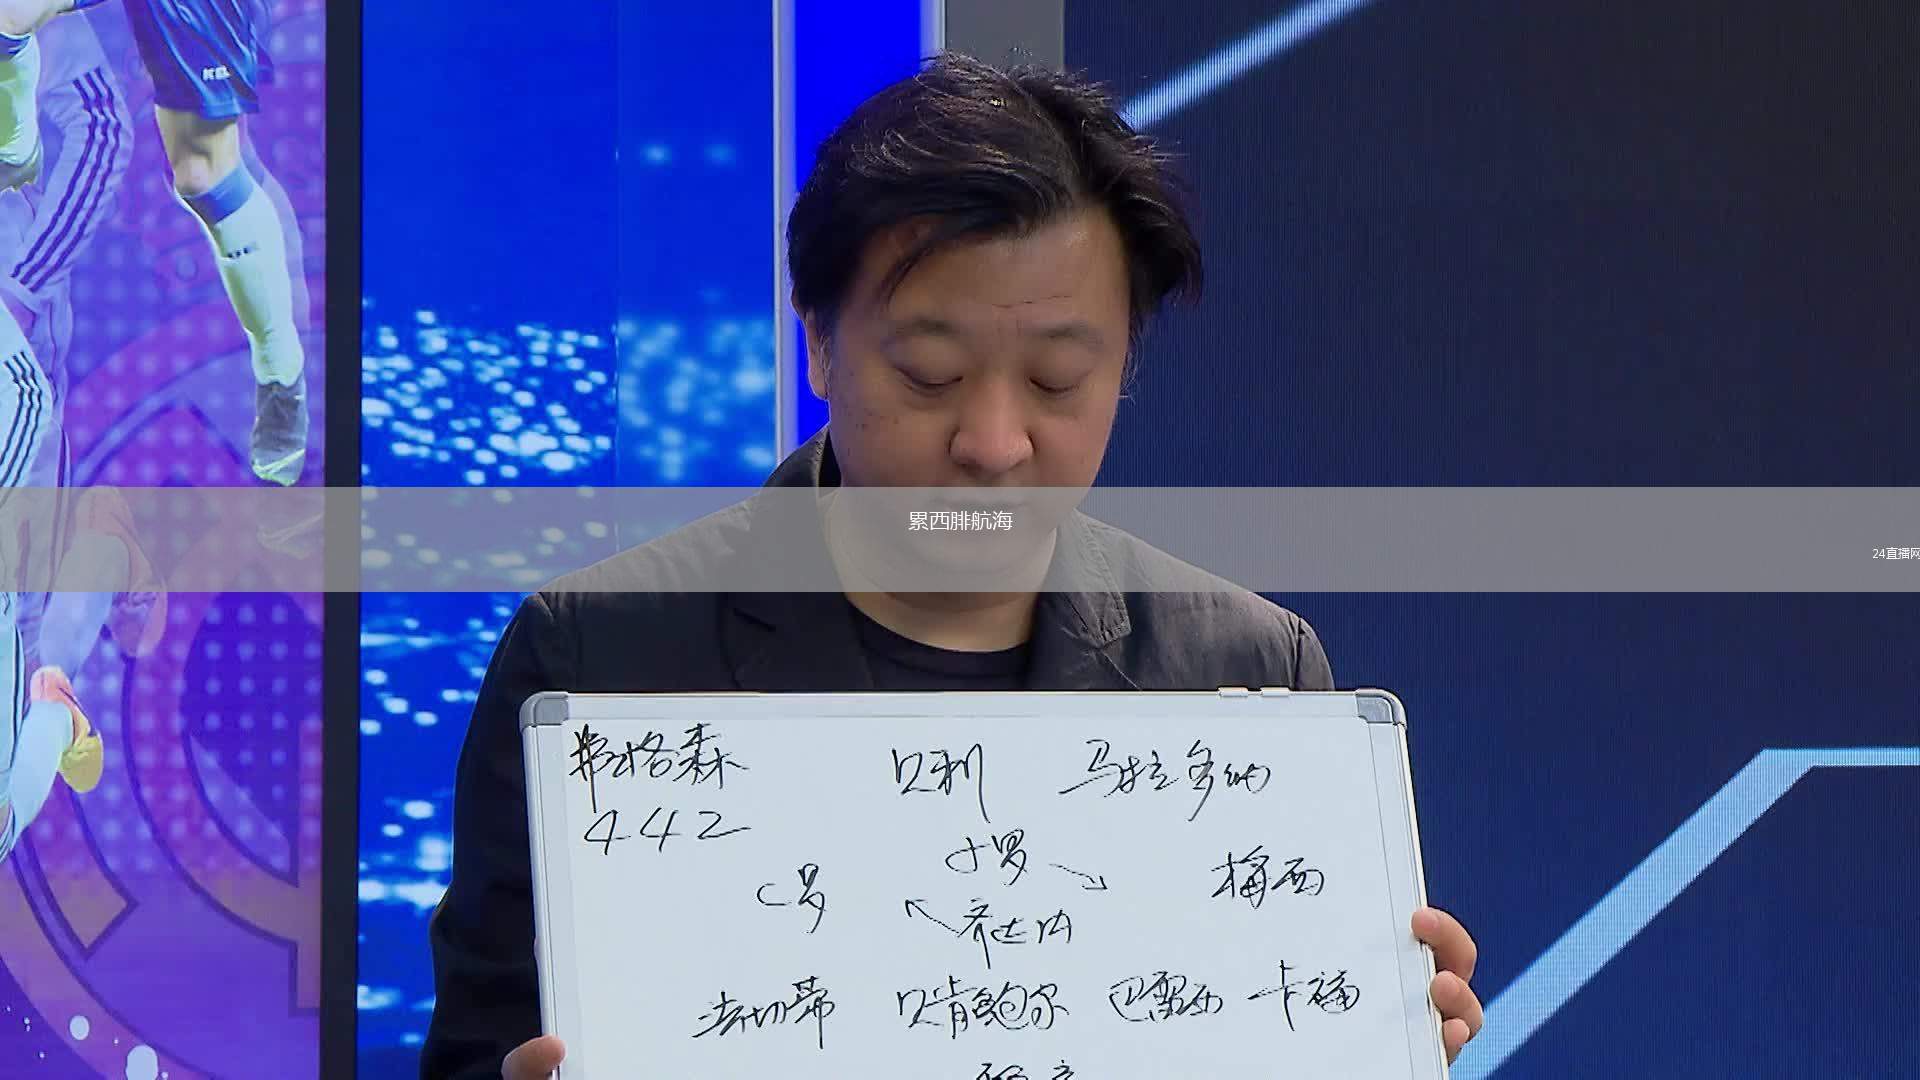 累西腓航海
24直播网
弗格森 贝利 马拉多纳
442
小罗
C罗 梅西
齐达内
法切蒂 贝肯鲍尔 巴雷西 卡福